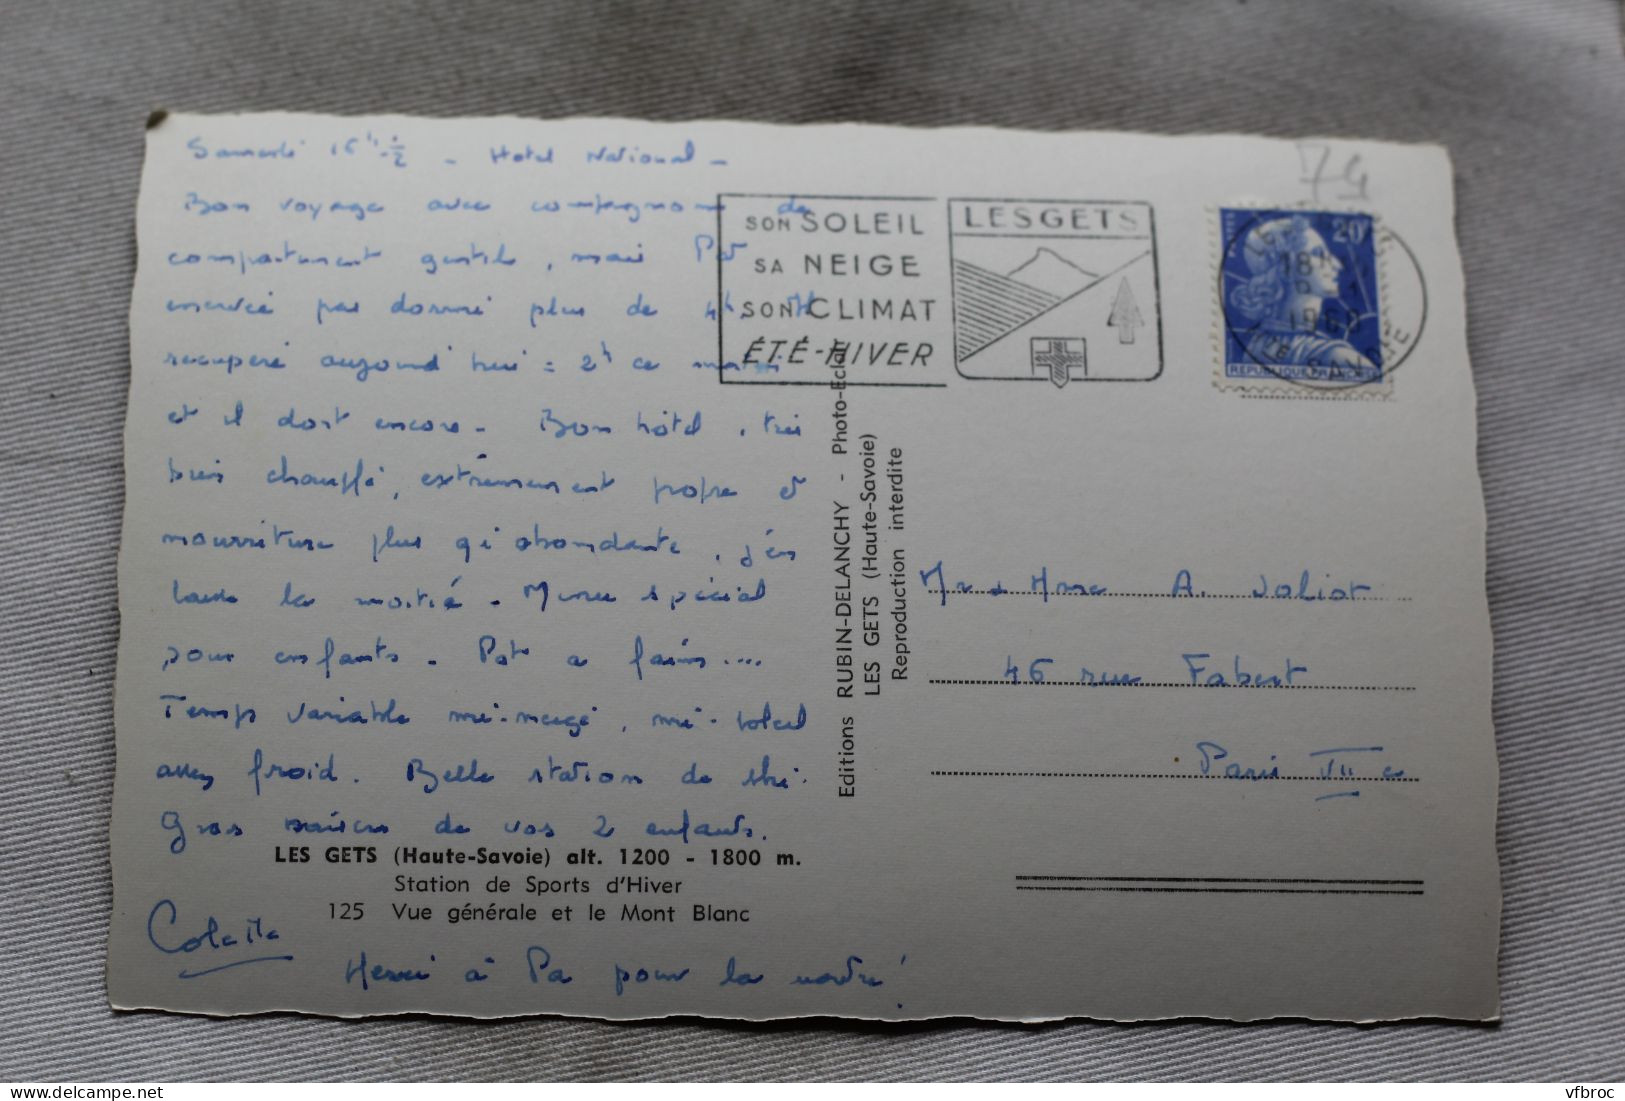 Samedi 15h 1/2 - Hotel National -
Bon voyage avec compagnons de
compartiment gentils, mais Pat
énervé pas dormi plus de 4h. Il
récupère aujourd'hui = 2h ce matin
et il dort encore - Bon hôtel, très
bien chauffé, extrêmement propre et
nourriture plus qu'abondante, j'en
laisse la moitié - Menu spécial
pour enfants - Pat a faim ....
Temps variable mi-neige, mi-soleil
assez froid. Belle station de ski.
Gros baisers de vos 2 enfants.
LES GETS (Haute-Savoie) alt. 1200 - 1800 m.
Station de Sports d'Hiver
125 Vue générale et le Mont Blanc
Colette
Merci à Pa pour la !
Editions RUBIN-DELANCHY - Photo-Eclair
LES GETS (Haute-Savoie)
Reproduction interdite
SON SOLEIL
SA NEIGE
SON CLIMAT
ÉTÉ-HIVER
LES GETS
74
POSTES
20F
REPUBLIQUE FRANÇAISE
18H
1960
HTE SAVOIE
Mr & Mme A. Joliot
46 rue Fabert
Paris VII e
vfbroc